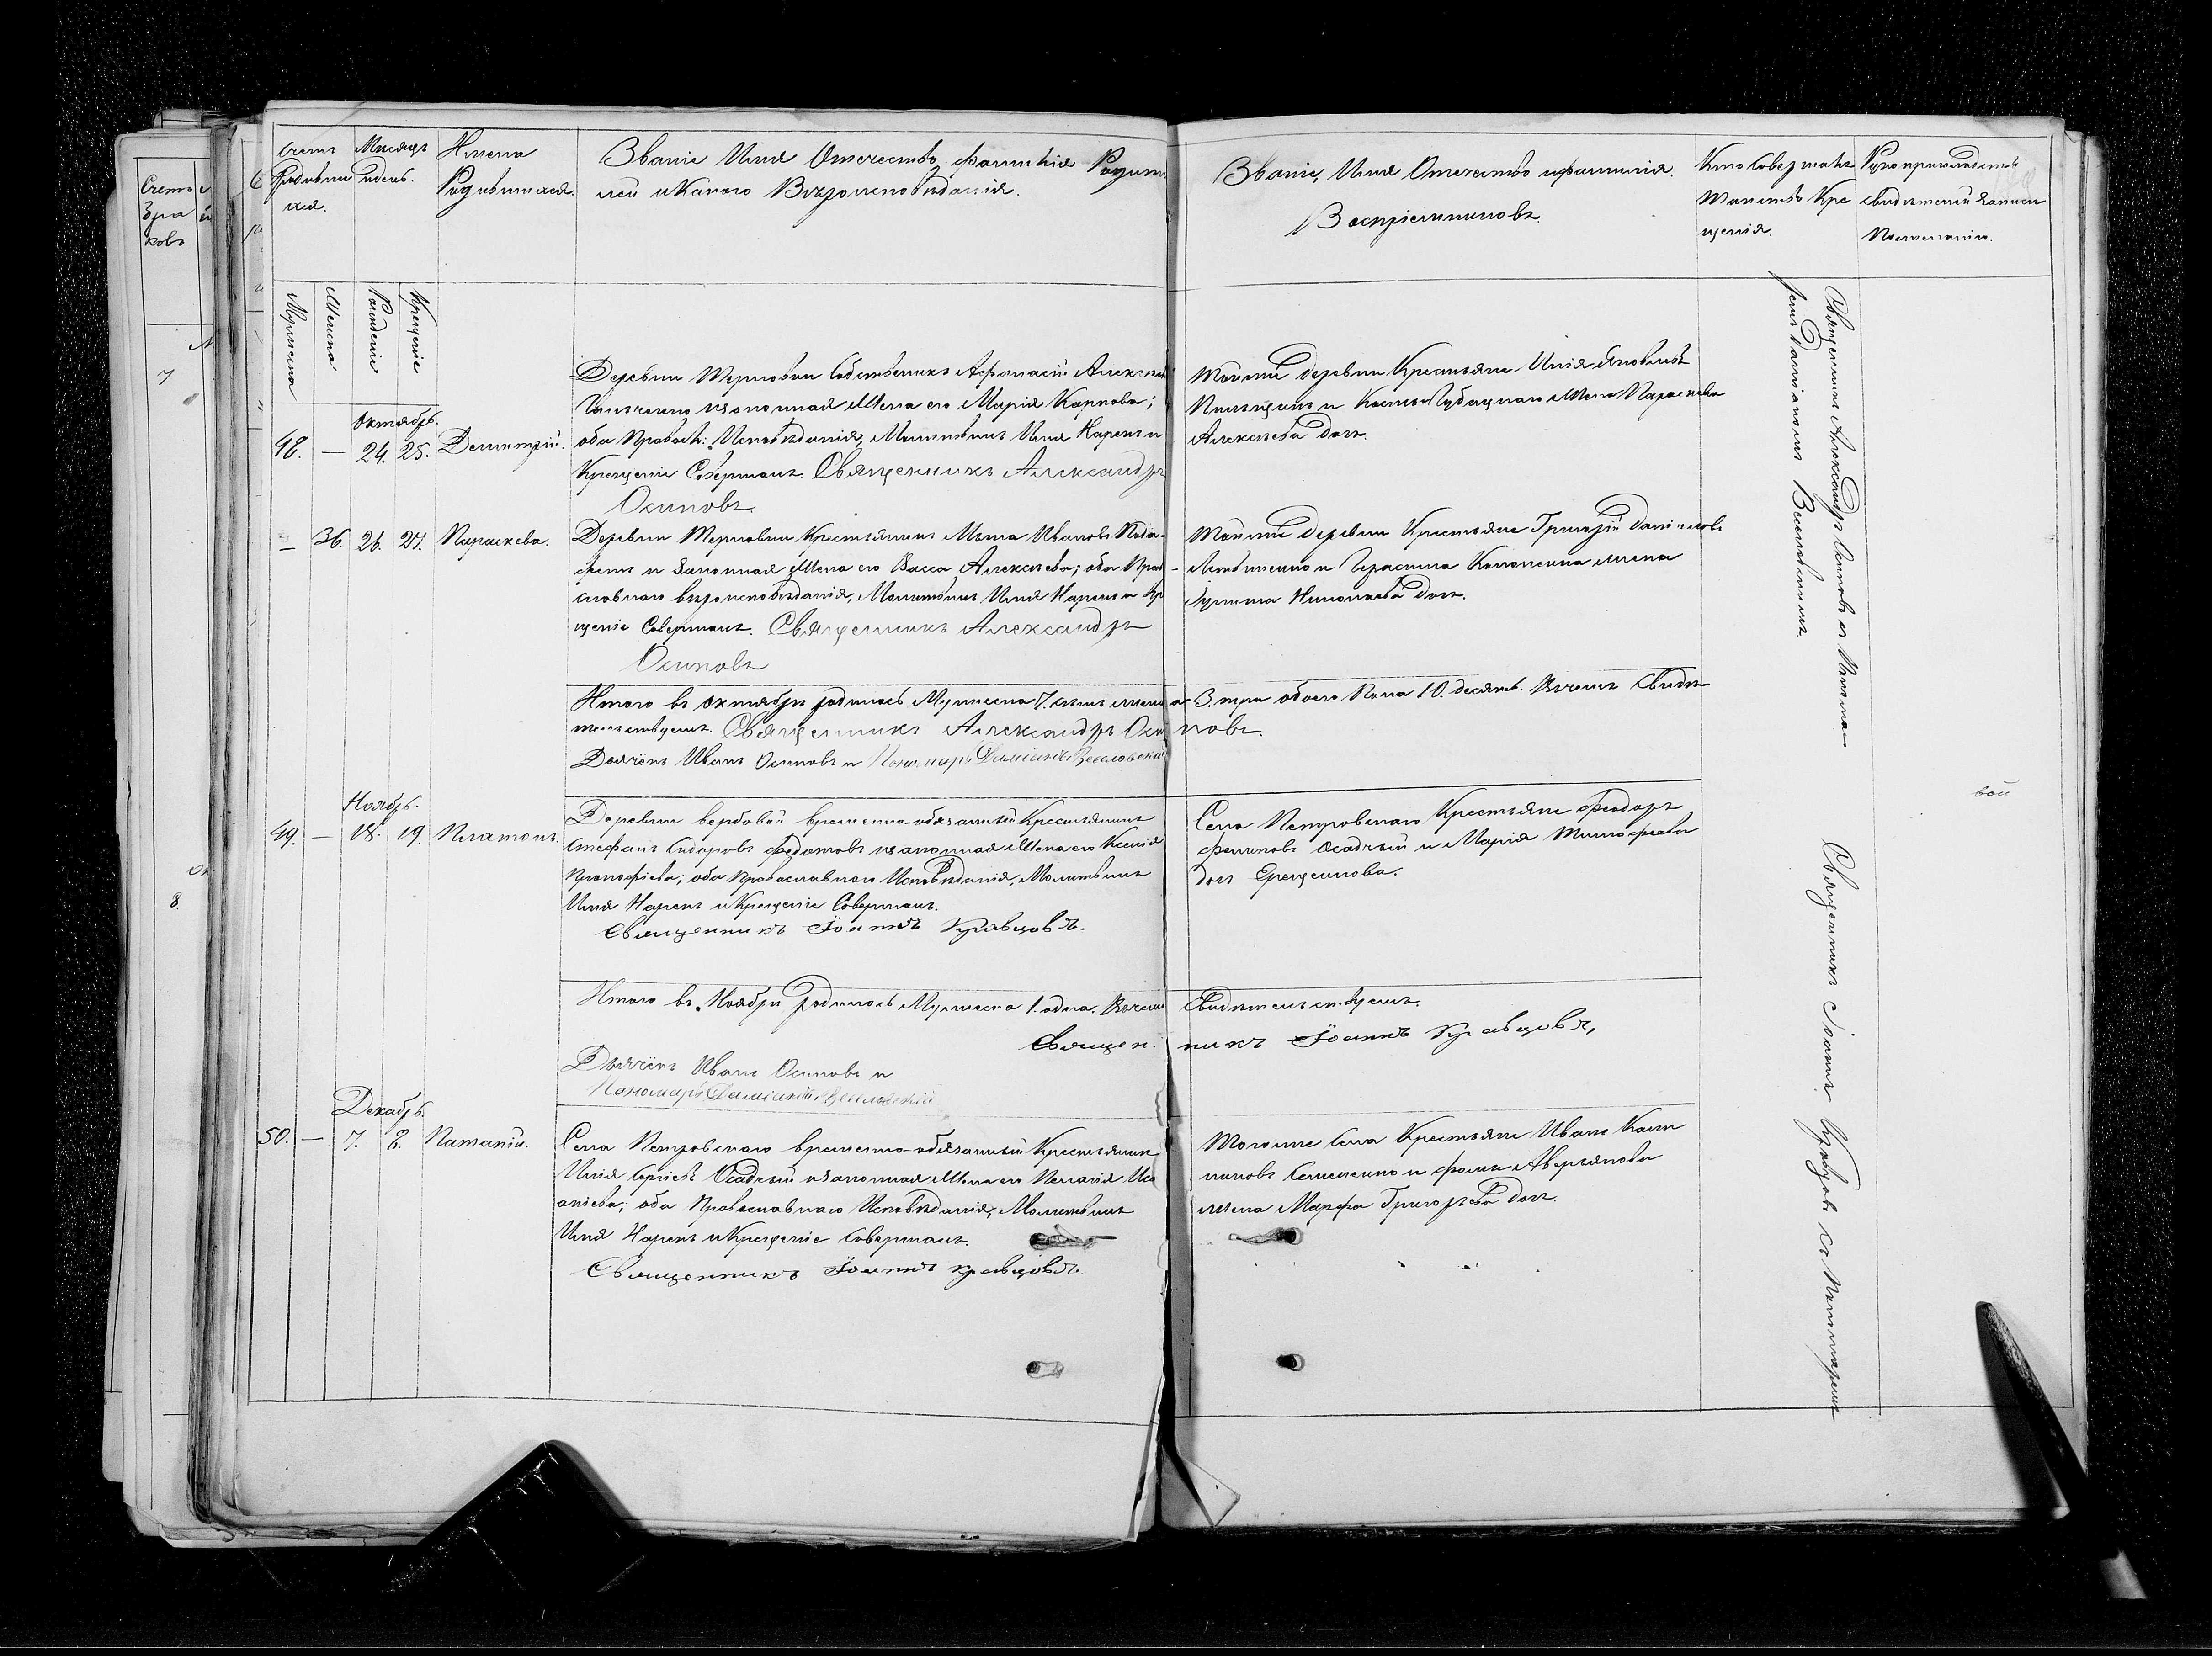 Счетъ
Родивши
хся.
Мѣсяцъ
и день.
Имена
Родившихся.
Званіе Имя Отечество, фамилія Родите
лей и Какого Вѣроисповѣданія.
Званіе, Имя Отечество и фамилія.
Воспріемниковъ.
Кто Совершалъ
Таинство Кре
щенія.
Рукоприкладство
свидѣтелей записи
По желанію.
Мужеска
Женска
Рожденіе
Крещеніе
Октябрь.
48. — 24. 25. Димитрій.
Деревни Терновки Собственникъ Афанасій Алексѣев
и законная Жена его Марія Карпова;
оба Правосл: Исповѣданія, Молитвилъ Имя Нарекъ и
Крещеніе Совершалъ. Священникъ Александръ
Осиповъ.
Той же деревни Крестьяне Илія Яковлевъ
и Жена Параскева
Алексѣева дочь.
— 36. 26. 27. Параскева.
Деревни Терновки Крестьянинъ Иванов
и Законная Жена его Васса Алексѣева; оба Прав
славнаго вѣроисповѣданія, Молитвилъ Имя Нарекъ и Кр
щеніе Совершалъ. Священникъ Александръ
Осиповъ
Той же деревни Крестьяне Григорій Даніиловъ
Литвиненко и Герасима жена
Николаева дочь.
Итого въ Октябрѣ родилось Мужеска 7. семь женска 3. три обоего Пола 10. десять. В чемъ Свидѣ
тельствуемъ. Священникъ Александръ Осиповъ.
Дьячекъ Иванъ Осиповъ и Пономарь Даміанъ Веселовскій
Ноябрь.
49. — 18. 19. Платонъ.
Деревни Вербовой временно-обязанный Крестьянинъ
Стефанъ Сидоровъ Федотовъ и законная Жена его Ксенія
Прокофіева; оба Православнаго Исповѣданія, Молитвилъ
Имя Нарекъ и Крещеніе Совершалъ.
Священникъ Іоаннъ Кравцовъ.
Села Петровскаго Крестьяне Феодоръ
Осадчый и Марія Тимофеева
дочь Ерещенкова.
Итого въ Ноябрѣ родилось Мужеска 1. одна. В чемъ Свидѣтельствуемъ.
Священникъ Іоаннъ Кравцовъ,
Дьячекъ Иванъ Осиповъ и
Пономарь Даміанъ Веселовскій
Декабрь.
50. — 7. 8. Патапій.
Села Петровскаго временно-обязанный Крестьянин
Илія Осадчый и законная Жена его Пелагія Иса
акіева; оба Православнаго Исповѣданія, Молитвилъ
Имя Нарекъ и Крещеніе Совершалъ.
Священникъ Іоаннъ Кравцовъ.
Того же Села Крестьяне Иванъ
Семененко и Фомы Аверьянова
жена Марфа Григорьева дочь.
Священникъ Александръ Осиповъ съ Понома
ремъ Даміаномъ Веселовскимъ.
Священникъ Іоаннъ Кравцовъ съ Пономаремъ
вой